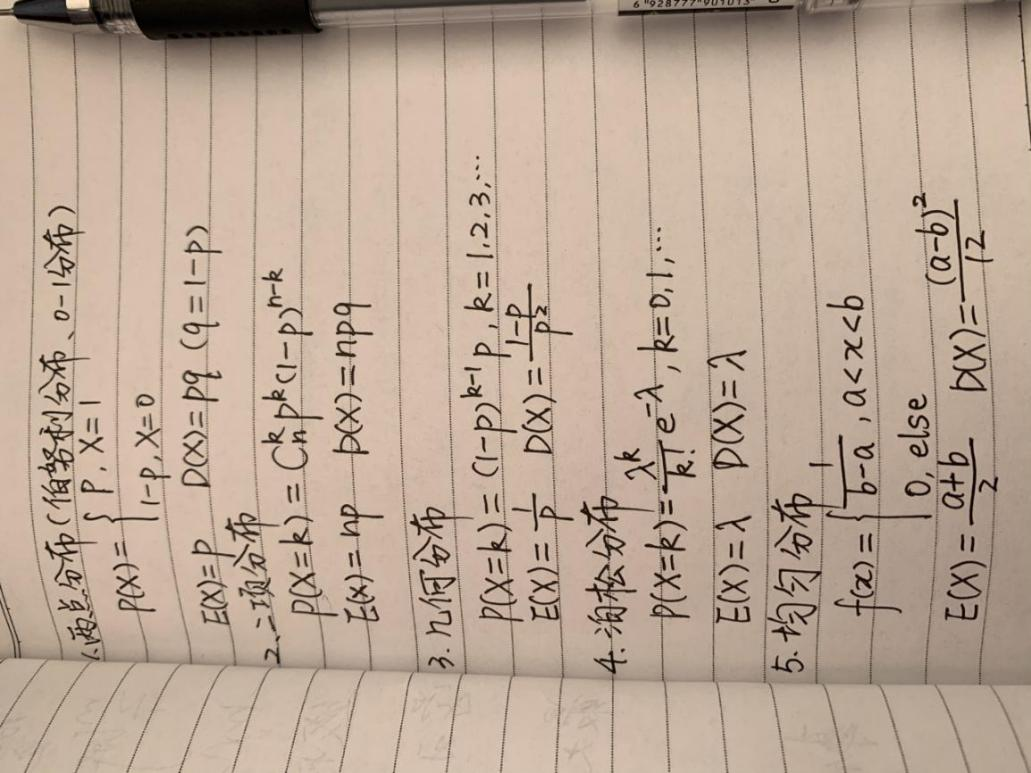 1.两点分布(伯努利分布、0-1分布)
P(X)={ p, X=1
1-p, X=0
E(X)=p D(X)=pq (q=1-p)
2.二项分布
P(X=k)=C_n^k p^k (1-p)^{n-k}
E(X)=np D(X)=npq
3.几何分布
P(X=k)=(1-p)^{k-1}p, k=1,2,3,…
E(X)=\frac{1}{p} D(X)=\frac{1-p}{p^2}
4.泊松分布
P(X=k)=\frac{λ^k}{k!}e^{-λ}, k=0,1,…
E(X)=λ D(X)=λ
5.均匀分布
f(x)={ \frac{1}{b-a}, a<x<b
0, else
E(X)=\frac{a+b}{2} D(X)=\frac{(a-b)^2}{12}
6 928777 901013